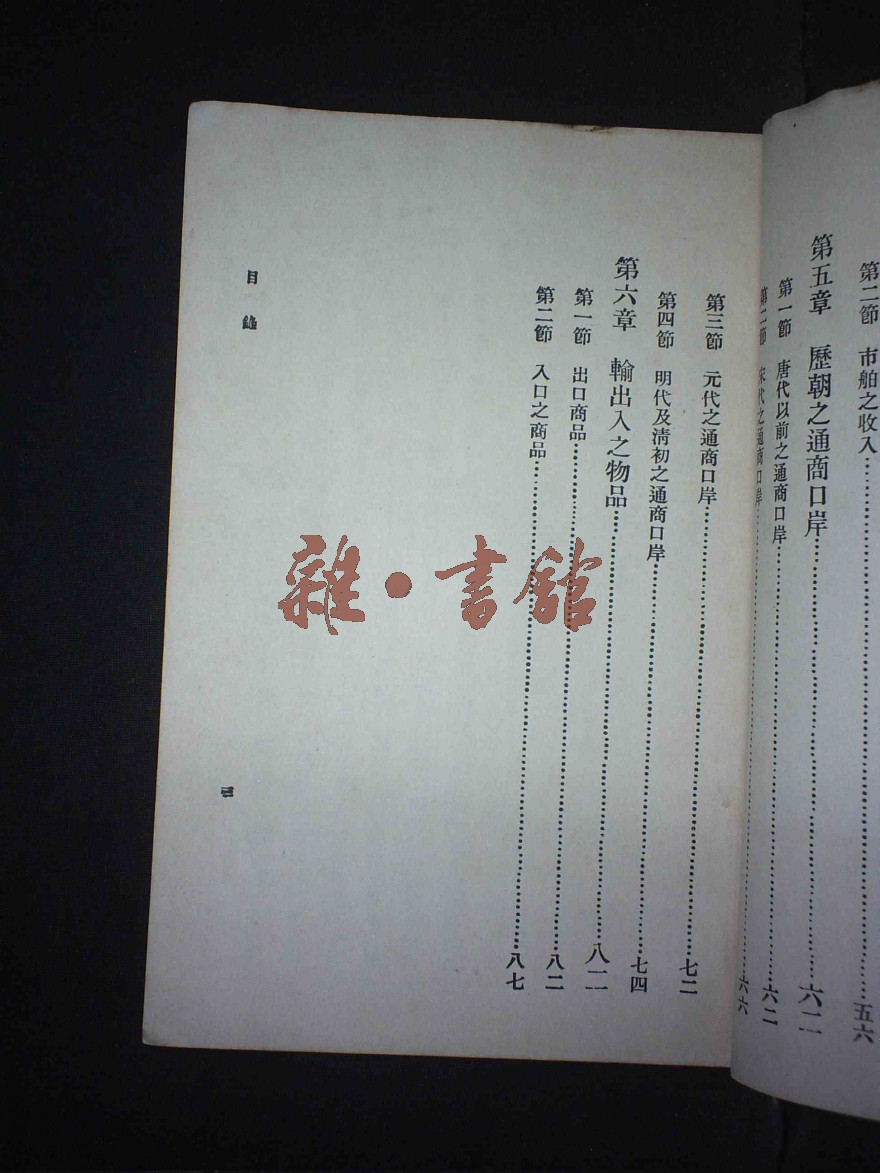 第二節　市舶之收入……五六
第五章　歷朝之通商口岸……六二
第一節　唐代以前之通商口岸……六二
第二節　宋代之通商口岸……六六
第三節　元代之通商口岸……七二
第四節　明代及清初之通商口岸……七四
第六章　輸出入之物品……八二
第一節　出口商品……八二
第二節　入口之商品……八七
目錄
三
雜·書館